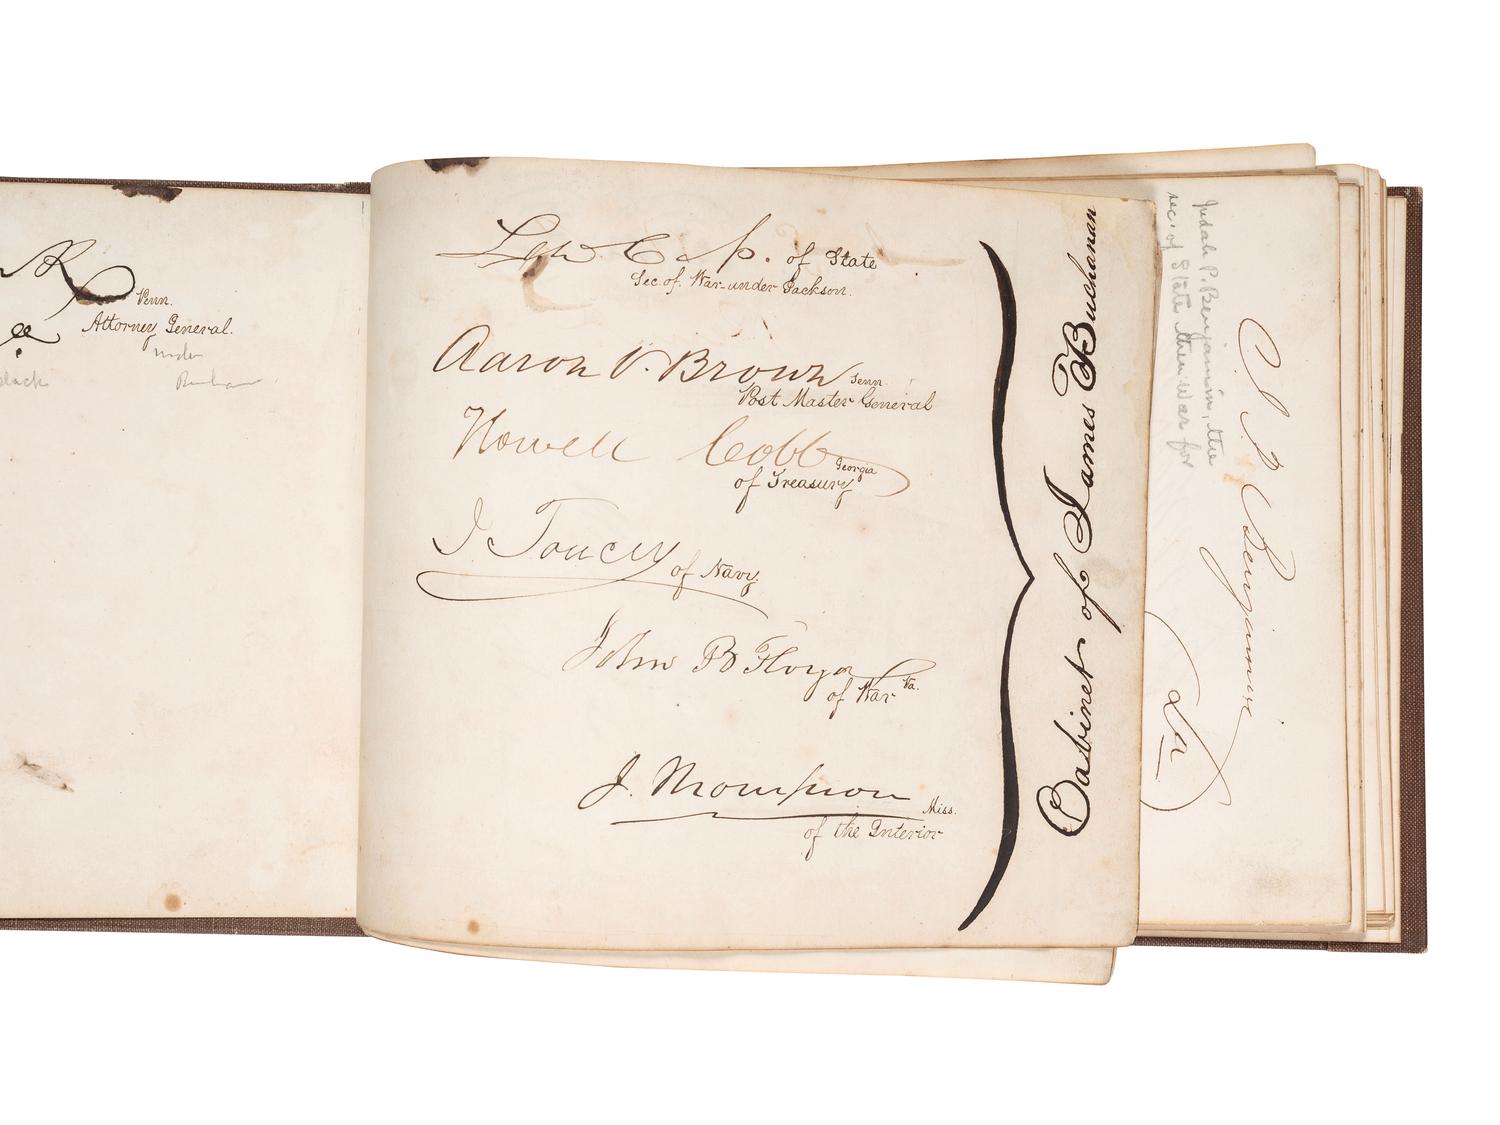 Penn.
Attorney General.
under
Black
Lew Cass. of State
Sec. of. War under Jackson.
Aaron V. Brown Tenn.
Post Master General
Howell Cobb Georgia
of Treasury
I Toucey of Navy.
John B Floyd
of War Va.
J. Thompson Miss.
of the Interior
Cabinet of James Buchanan
Judah P. Benjamin, the
sec. of State then War for
J P Benjamin
La